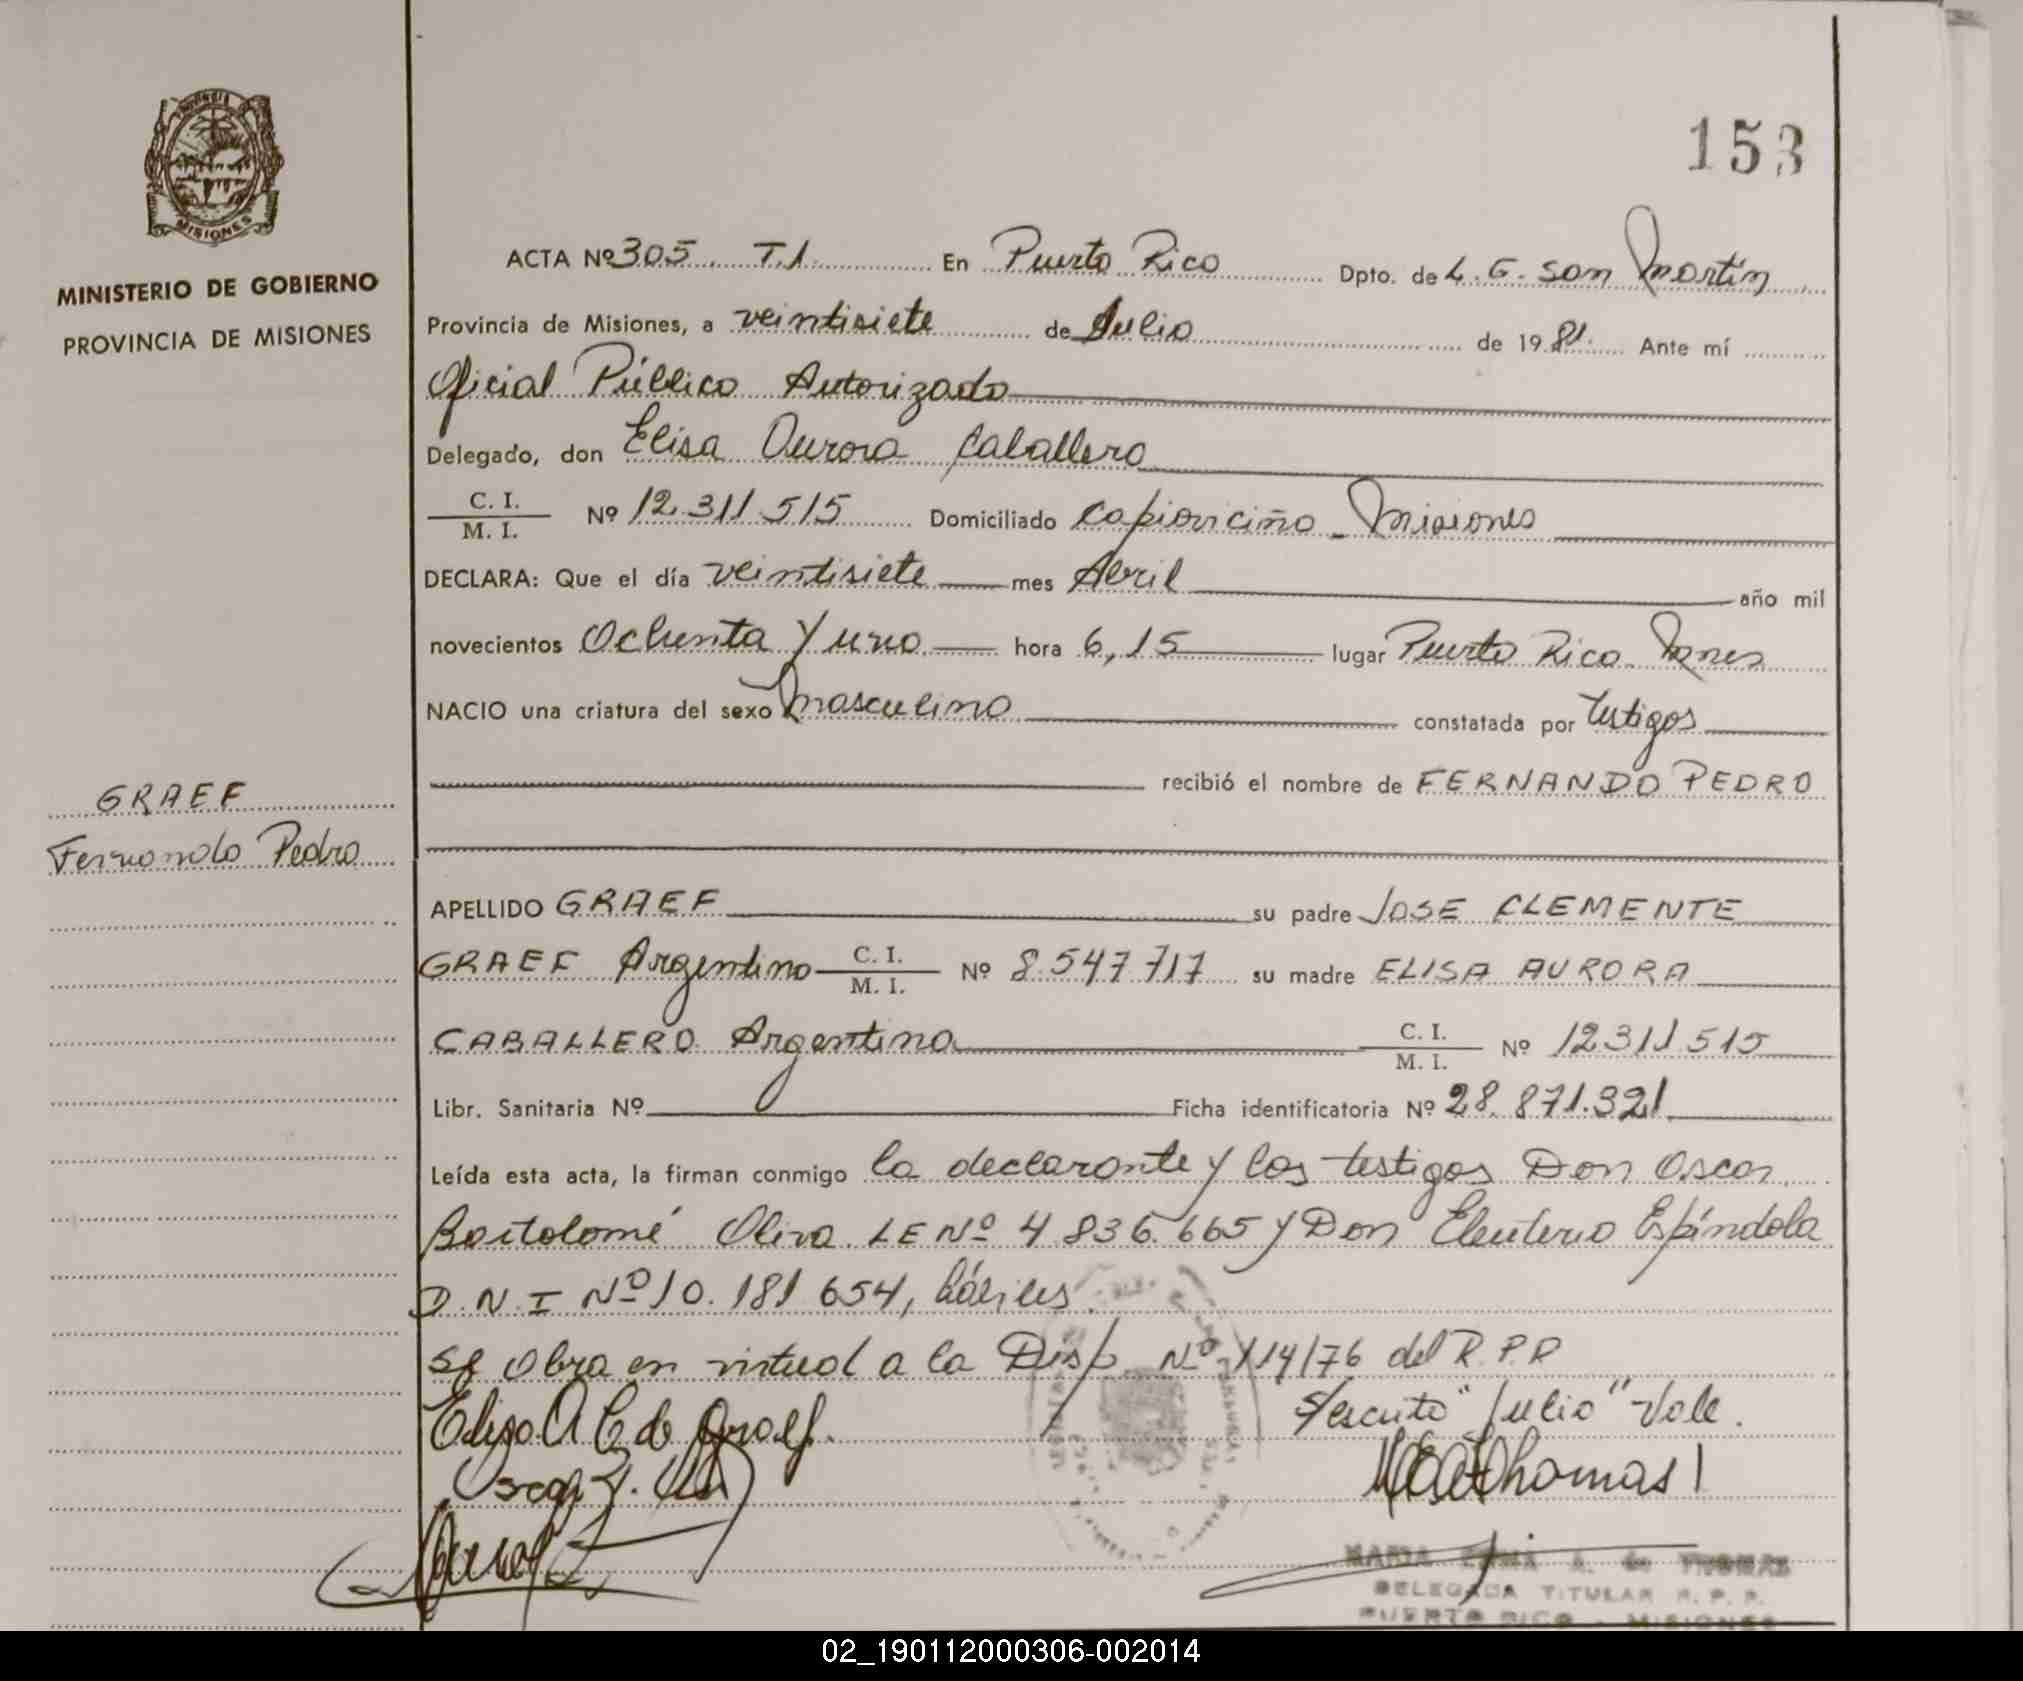 153
PROVINCIA
MISIONES
MINISTERIO DE GOBIERNO
PROVINCIA DE MISIONES
ACTA Nº 305 T.1 En Puerto Rico Dpto. de L. G. San Martín
Provincia de Misiones, a veintisiete de Julio de 1981 Ante mí
Oficial Público Autorizado
Delegado, don Elisa Aurora Caballero
C. I.
M. I. Nº 12.311.515 Domiciliado Capioviciño - Misiones
DECLARA: Que el día veintisiete mes Abril año mil
novecientos Ochenta y uno hora 6,15 lugar Puerto Rico Mnes
NACIO una criatura del sexo masculino constatada por testigos
recibió el nombre de FERNANDO PEDRO
GRAEF
Fernando Pedro
APELLIDO GRAEF su padre JOSE CLEMENTE
GRAEF Argentino C. I. M. I. Nº 8.547.717 su madre ELISA AURORA
CABALLERO Argentina C. I. M. I. Nº 12311515
Libr. Sanitaria Nº Ficha identificatoria Nº 28.871.321
Leída esta acta, la firman conmigo la declarante y los testigos Don Oscar
Bartolomé Oliva LE Nº 4.836.665 y Don Eleuterio Espíndola
D.N.I Nº 10.181 654, hábiles.
Se obra en virtud a la Disp. Nº 114/76 del R.P.P
S/escrito "Julio" Vale.
Elisa A C de Graef.
Thomas
MARIA A. de THOMAS
DELEGADA TITULAR R. P. P.
PUERTO RICO - MISIONES
02_190112000306-002014